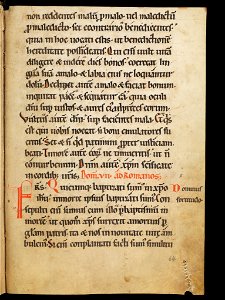 non reddentes malũ p malo. ñ maledictũ
p maledicto. sed econtrario benedicentes
quia in hoc uocati estis. ut benedictionẽ
hereditate possideatis. Qui enĩ uult uitã
diligere & uidere dies bonos. coerceat lin
guã suã a malo. & labia eius ne loquantur
dolũ. Declinet autẽ a malo. & faciat bonum.
inquirat pacẽ & sequatur eã. Quia oculi
dñi sup iustos. & aures ei ad preces eorum.
Vultus autẽ dñi sup facientes mala. Et qis
est qui uobis noceat. si boni emulatores fu
eritis. Sed & si qid patimini ppter iusticiam.
beati. Timorẽ autẽ eoꝝ ne timueritis. ut ñ
conturbemini. Dñm autẽ xpm scificate
in cordib; uris. Dom. vii. ad Romanos.
Frs. Quicumq; baptizati sumus in xpo
ihu. in morte ipsius baptizati sumus. Con
sepulti eni sumus cum illo p baptismũ in
morte. ut quom xps surrexit a mortuis p
gliam patris. ita & nos in nouitate uite am
bulem. Si eni complantati facti sumus similitu
Dominus
fortitudo